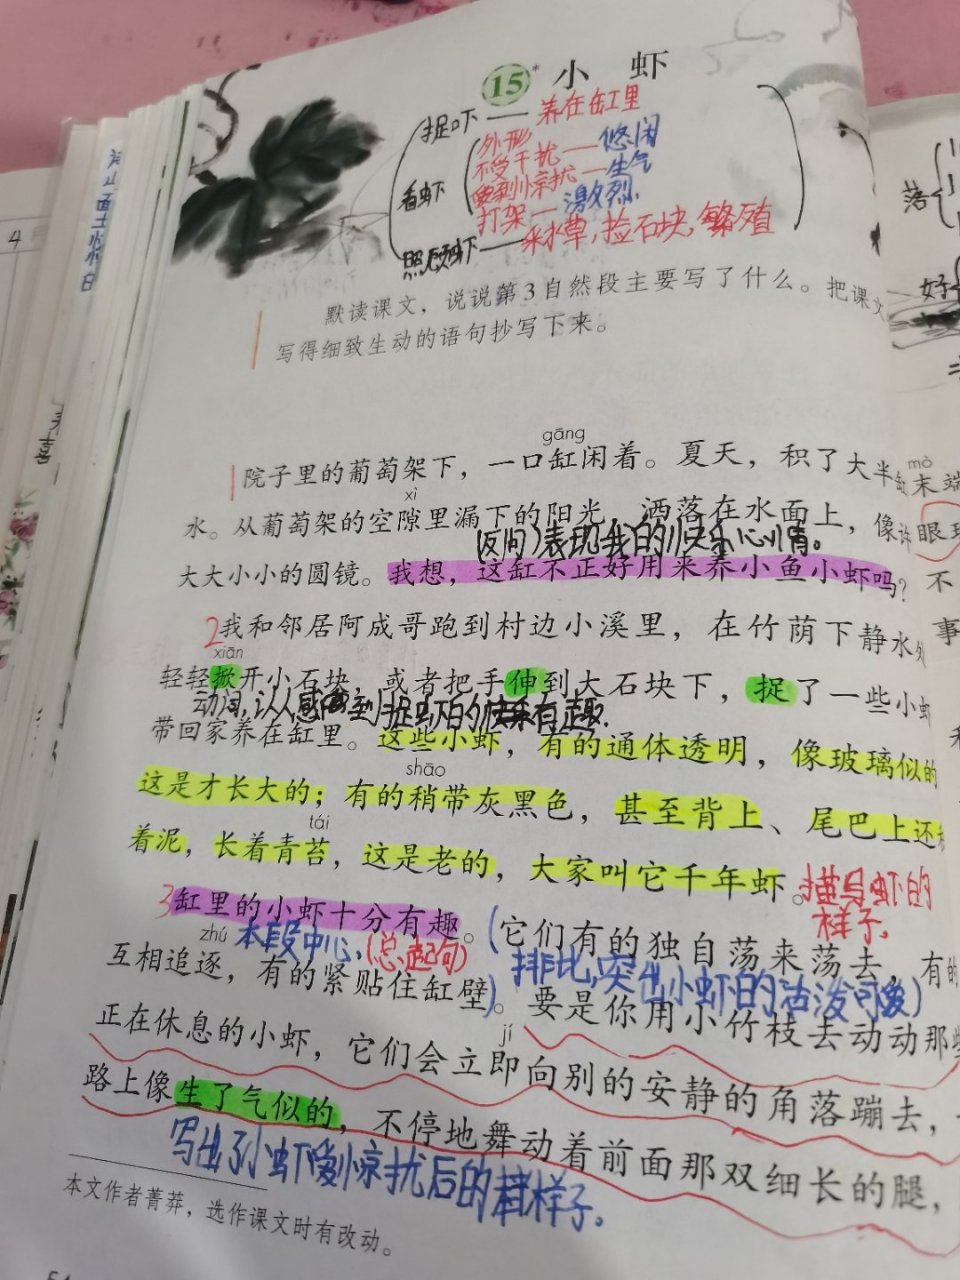 15* 小 虾
捉虾 — 养在缸里
外形
看虾
不受干扰 — 悠闲
受到惊扰 — 生气
打架 — 激烈
照顾虾 — 采水草,捡石块,繁殖
默读课文，说说第3自然段主要写了什么。把课文
写得细致生动的语句抄写下来。
gāng
院子里的葡萄架下，一口缸闲着。夏天，积了大半缸
xì
水。从葡萄架的空隙里漏下的阳光，洒落在水面上，像许
(反问)表现我的快乐心情。
大大小小的圆镜。我想，这缸不正好用来养小鱼小虾吗？
2我和邻居阿成哥跑到村边小溪里，在竹荫下静水处
xiān
轻轻掀开小石块，或者把手伸到大石块下，捉了一些小虾
动词,让人感受到捉虾的快乐有趣.
带回家养在缸里。这些小虾，有的通体透明，像玻璃似的
shāo
这是才长大的；有的稍带灰黑色，甚至背上、尾巴上还
tái
着泥，长着青苔，这是老的，大家叫它千年虾。
描写虾的
样子.
3缸里的小虾十分有趣。(它们有的独自荡来荡去，有的
zhú
本段中心,(总起句)
互相追逐，有的紧贴住缸壁)。要是你用小竹枝去动动那些
排比,突出小虾的活泼可爱)
正在休息的小虾，它们会立即向别的安静的角落蹦去，
jí
路上像生了气似的，不停地舞动着前面那双细长的腿，
写出了小虾受惊扰后的样子.
本文作者菁莽，选作课文时有改动。
4
喜
落
好
mò
末端
眼
不
事